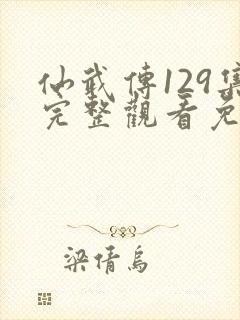 仙武傳129集
完整觀看免
梁倩烏